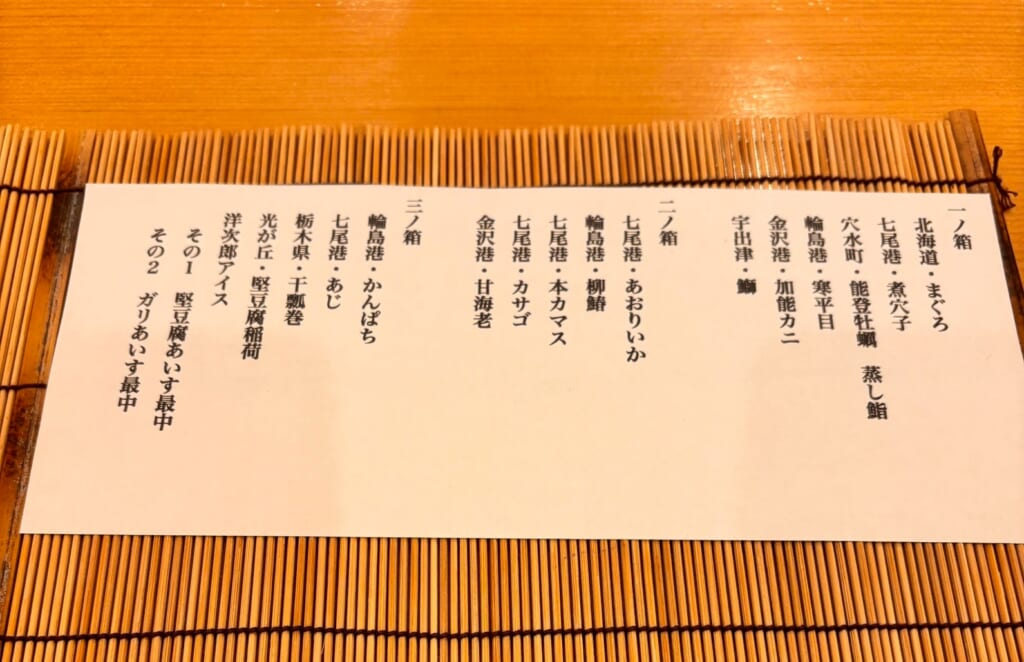 一ノ箱
北海道・まぐろ
七尾港・煮穴子
穴水町・能登牡蠣　蒸し鮨
輪島港・寒平目
金沢港・加能カニ
宇出津・鰤
二ノ箱
七尾港・あおりいか
輪島港・柳鰆
七尾港・本カマス
七尾港・カサゴ
金沢港・甘海老
三ノ箱
輪島港・かんぱち
七尾港・あじ
栃木県・干瓢巻
光が丘・堅豆腐稲荷
洋次郎アイス
その1　堅豆腐あいす最中
その2　ガリあいす最中